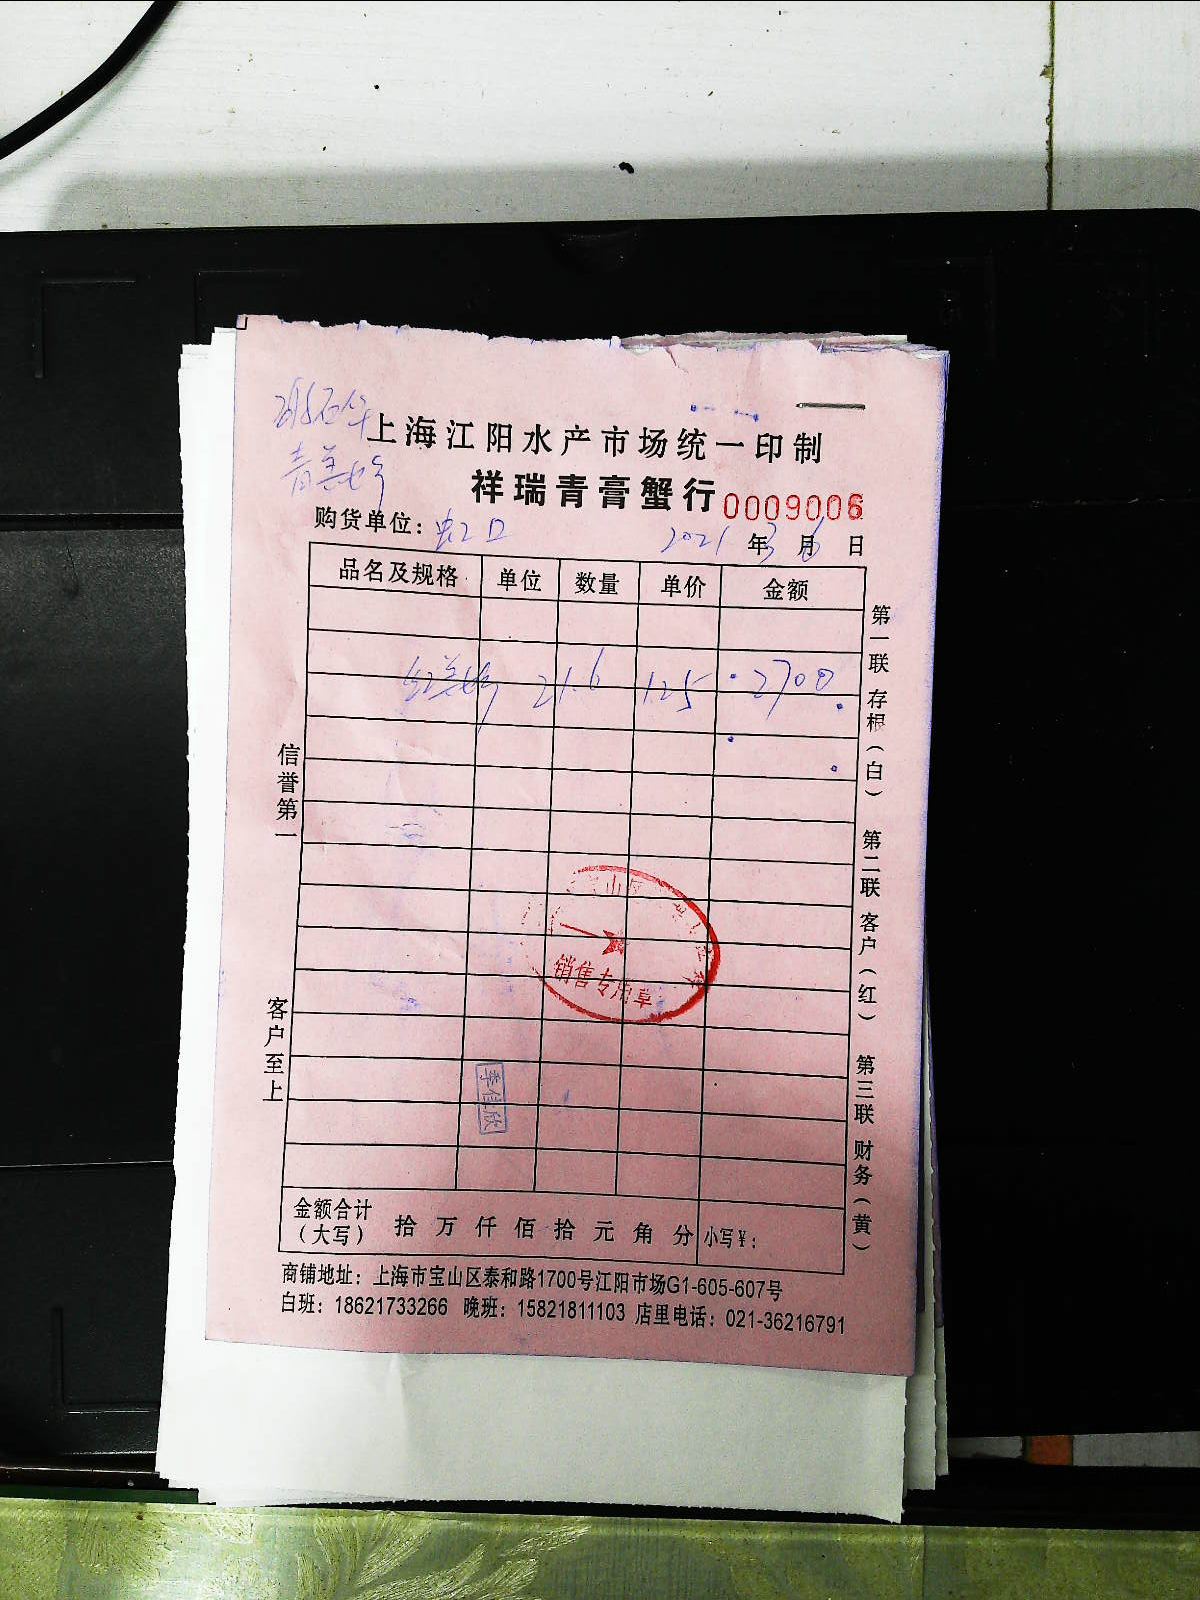 上海江阳水产市场统一印制
祥瑞青膏蟹行 0009006
购货单位：虹口 2021年3月6日
品名及规格 单位 数量 单价 金额
21.6 125 2700
信誉第一
客户至上
第一联 存根（白） 第二联 客户（红） 第三联 财务（黄）
销售专用章
李佳欣
金额合计（大写） 拾 万 仟 佰 拾 元 角 分 小写¥：
商铺地址：上海市宝山区泰和路1700号江阳市场G1-605-607号
白班：18621733266 晚班：15821811103 店里电话：021-36216791